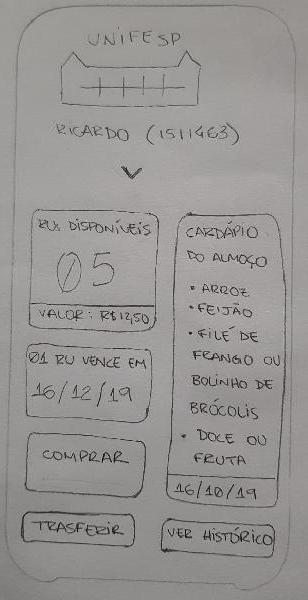 UNIFESP
RICARDO (1511463)
RUs DISPONÍVEIS
05
VALOR: R$12,50
01 RU VENCE EM
16/12/19
COMPRAR
TRASFERIR
CARDÁPIO
DO ALMOÇO
• ARROZ
• FEIJÃO
• FILÉ DE
FRANGO OU
BOLINHO DE
BRÓCOLIS
• DOCE OU
FRUTA
16/10/19
VER HISTÓRICO